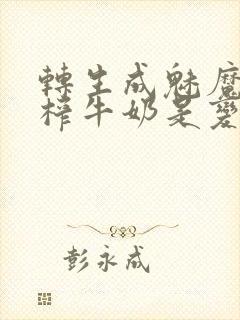 轉生成魅魔
榨牛奶是變
彭永成